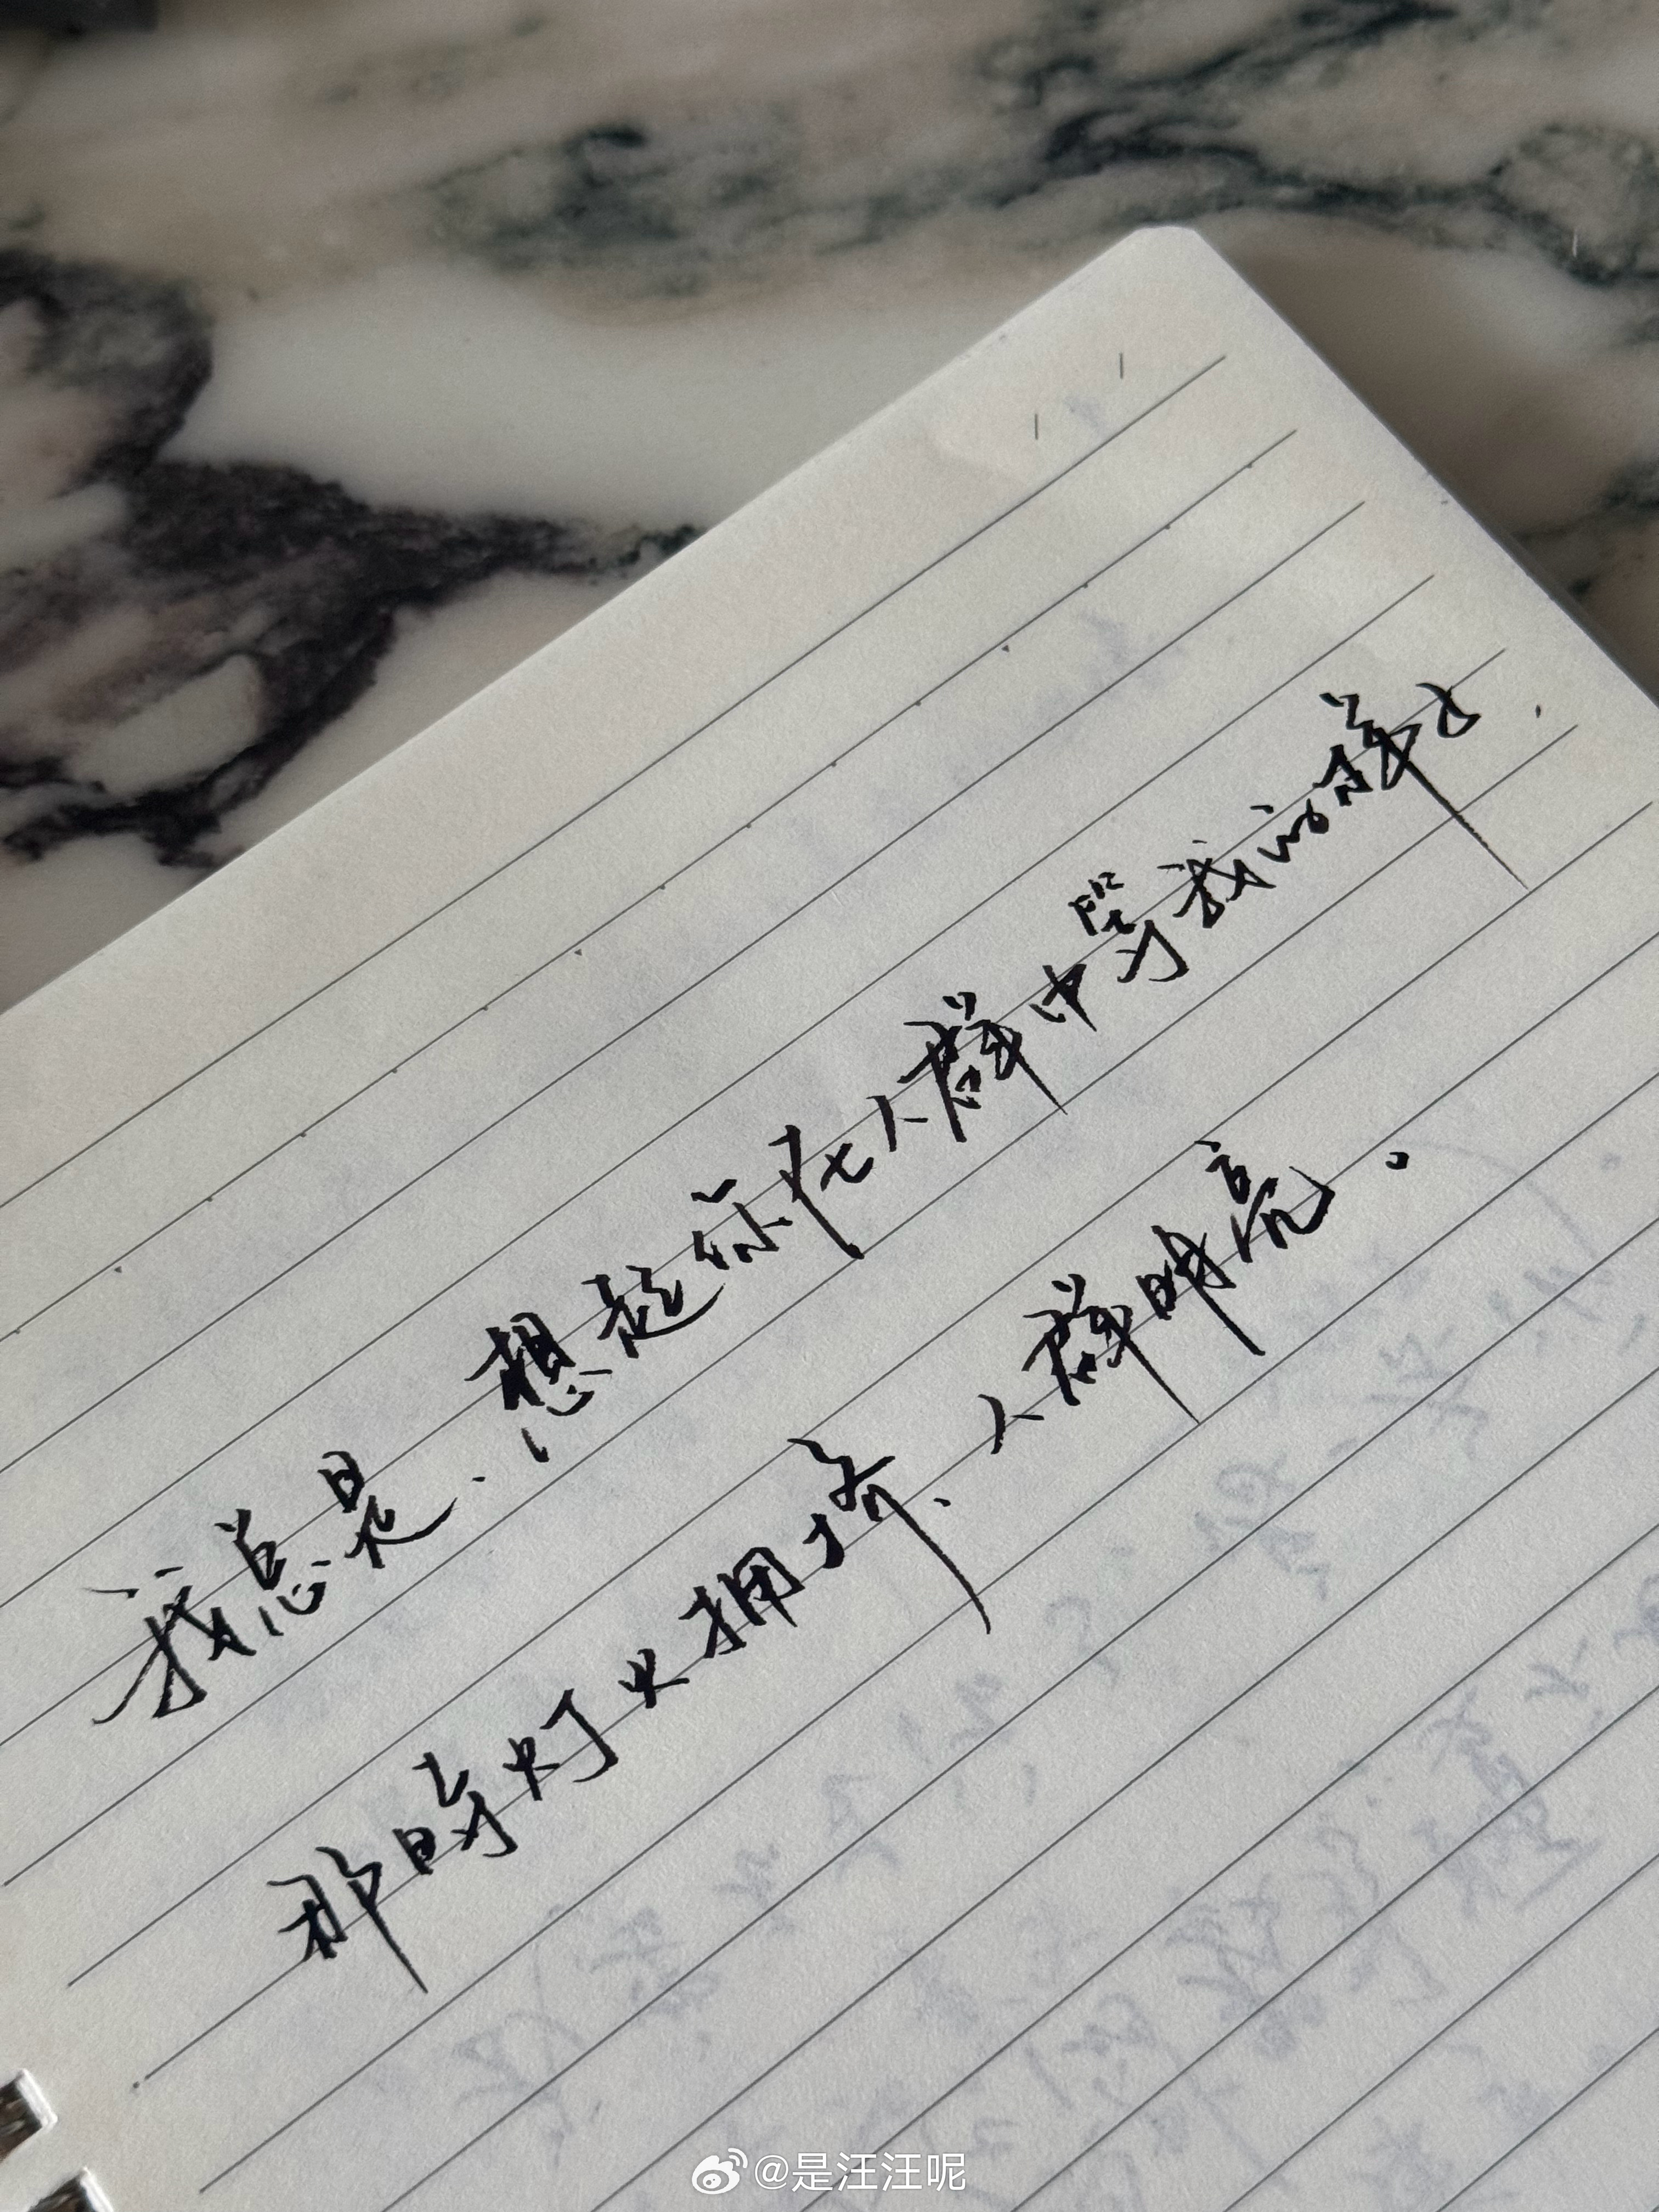 我总是，想起你在人群中等我的样子，
那時灯火拥挤，人群明亮。
@是汪汪呢